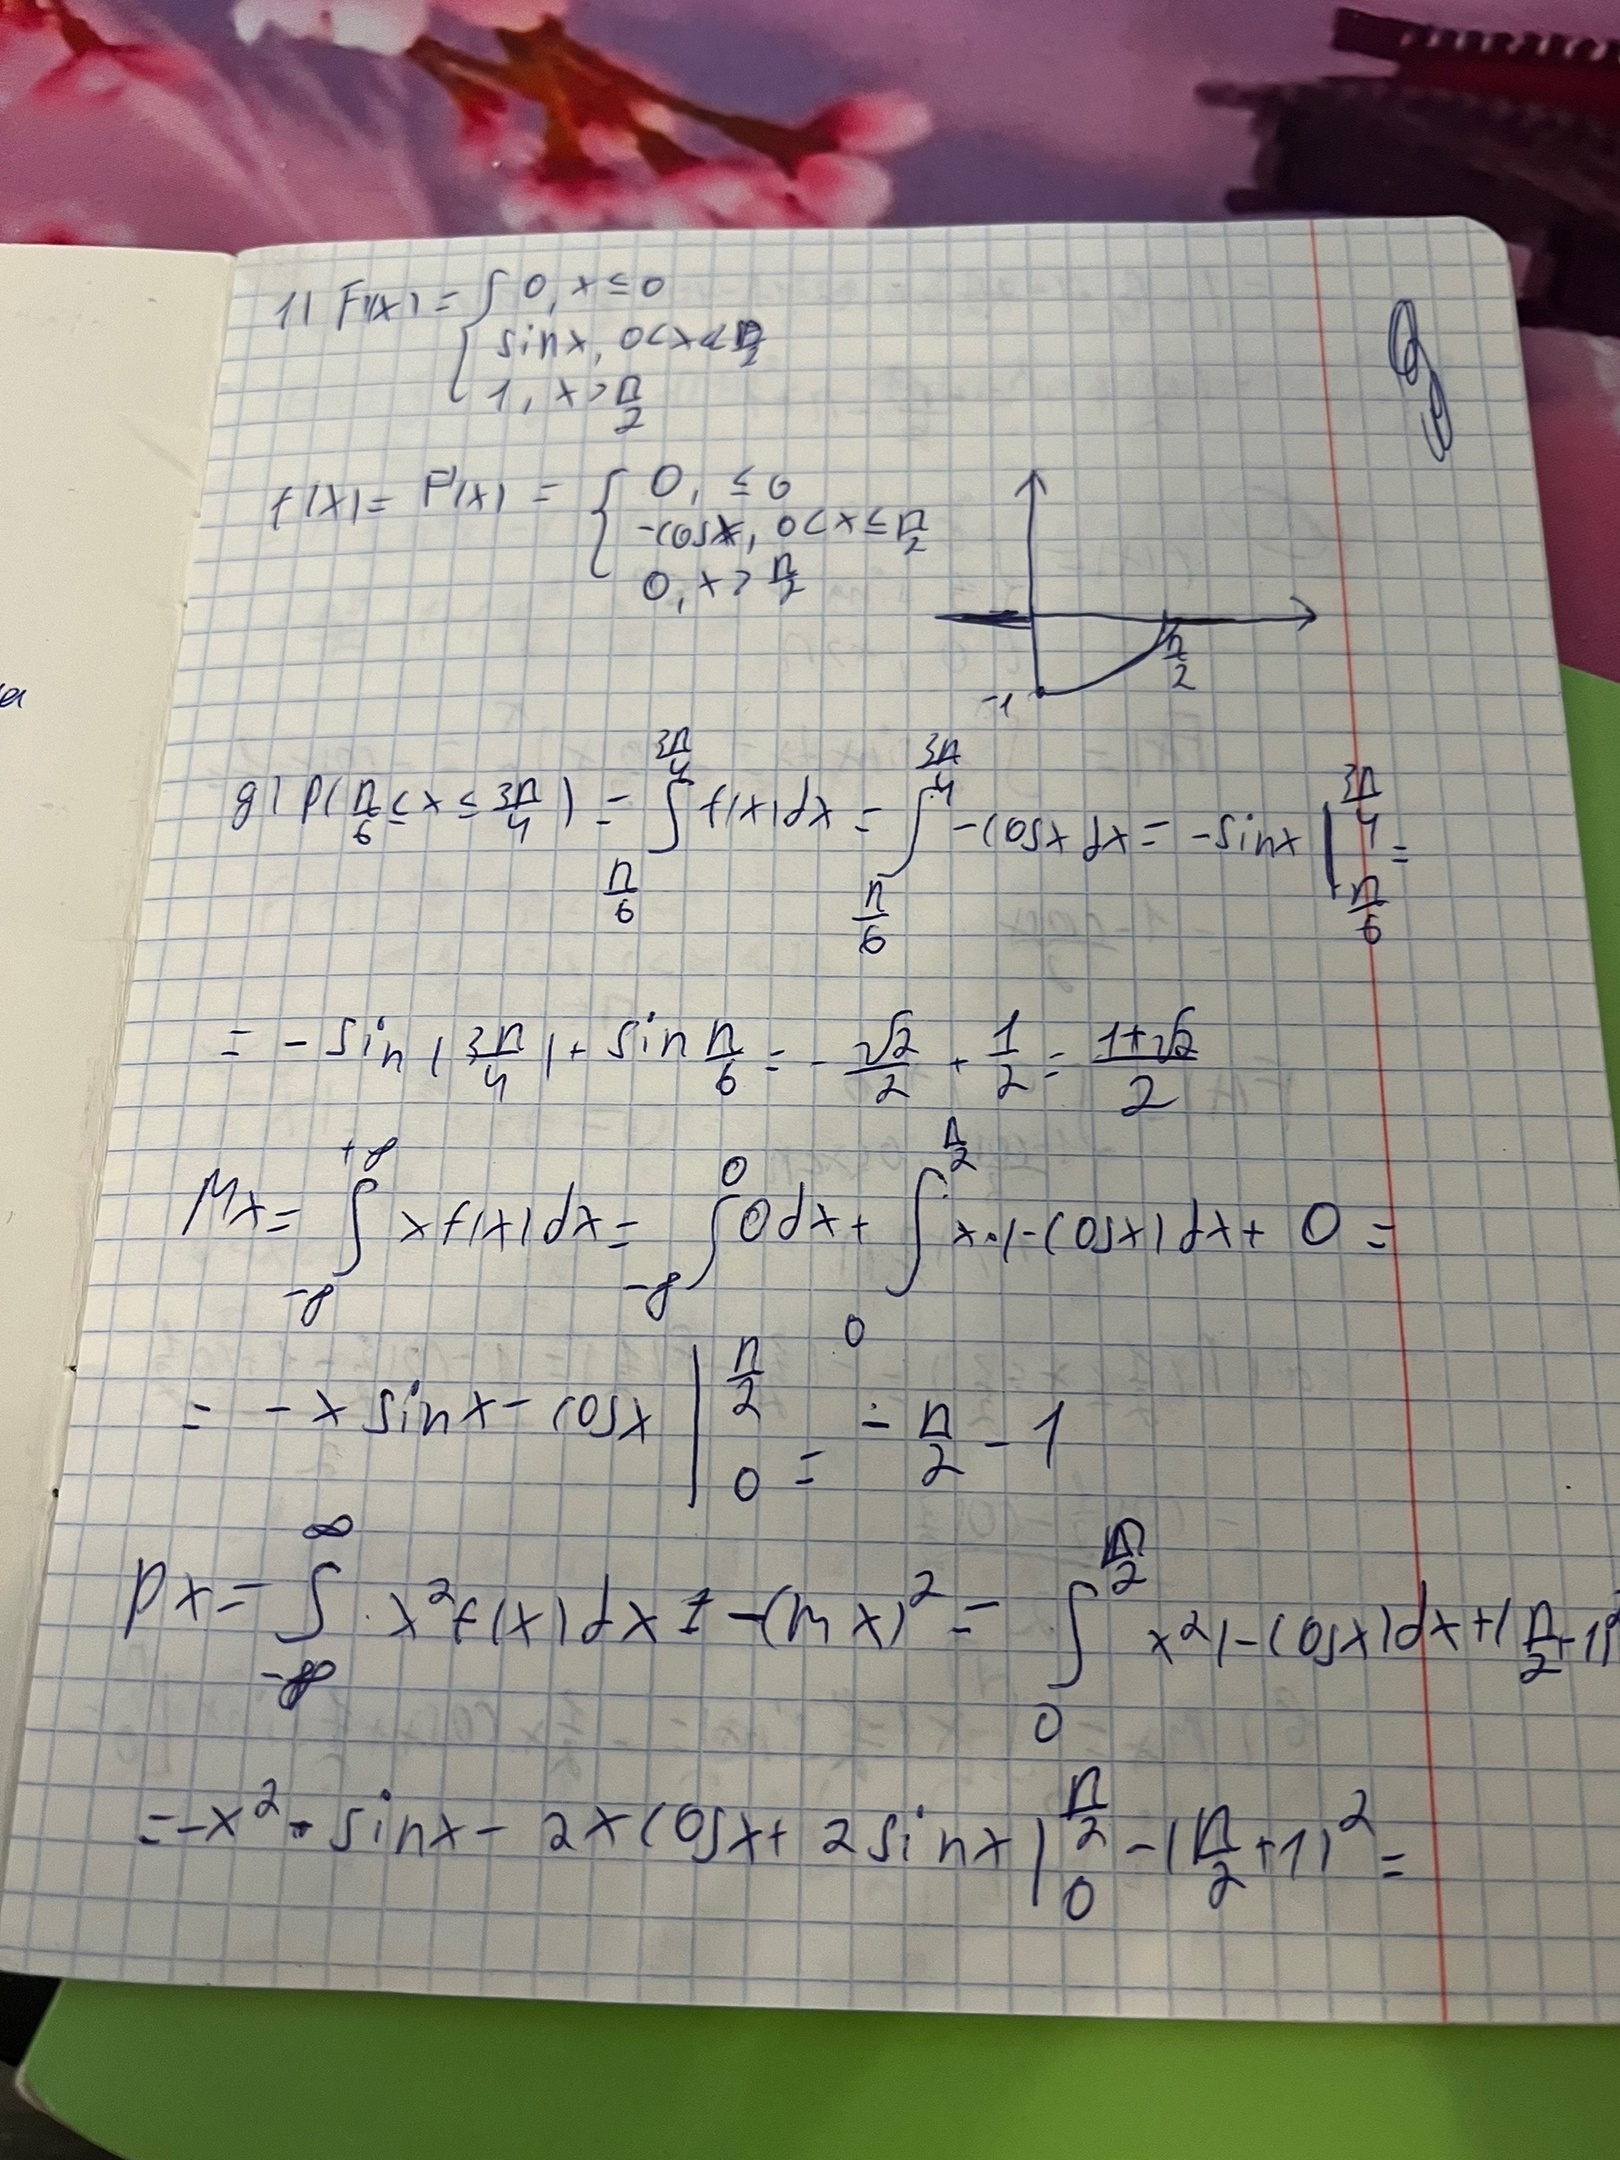 1) F(x) = { 0, x ≤ 0
sinx, 0 < x ≤ π/2
1, x > π/2
f(x) = F'(x) = { 0, ≤ 0
-cosx, 0 < x ≤ π/2
0, x > π/2
π/2
-1
g) P(π/6 ≤ x ≤ 3π/4) = ∫_{π/6}^{3π/4} f(x)dx = ∫_{π/6}^{3π/4} -cosx dx = -sinx |_{π/6}^{3π/4} =
= -sin(3π/4) + sin π/6 = -√2/2 + 1/2 = 1+√2/2
Mx = ∫_{-∞}^{+∞} x f(x)dx = ∫_{-∞}^{0} 0dx + ∫_{0}^{π/2} x·(-cosx)dx + 0 =
= -x sinx - cosx |_{0}^{π/2} = -π/2 - 1
Dx = ∫_{-∞}^{∞} x² f(x)dx - (mx)² = ∫_{0}^{π/2} x²(-cosx)dx + (π/2 + 1)²
= -x² · sinx - 2x cosx + 2sinx |_{0}^{π/2} - (π/2 + 1)² =